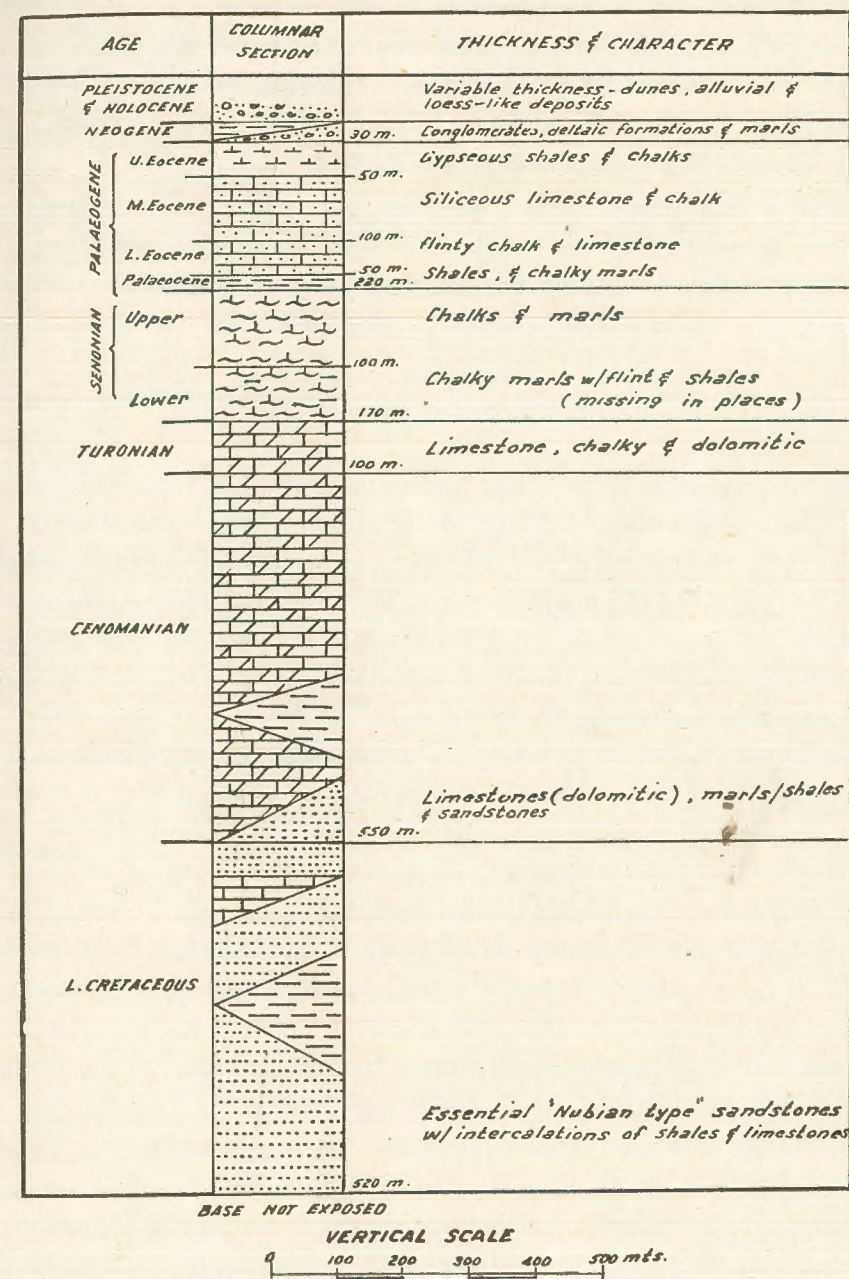 AGE
COLUMNAR
SECTION
THICKNESS & CHARACTER
PLEISTOCENE
& HOLOCENE
Variable thickness - dunes, alluvial &
loess-like deposits
NEOGENE
30 m.
Conglomerates, deltaic formations & marls
PALAEOGENE
U. Eocene
Gypseous shales & chalks
50 m.
M. Eocene
Siliceous limestone & chalk
100 m.
L. Eocene
flinty chalk & limestone
50 m.
Palaeocene
220 m.
Shales, & chalky marls
SENONIAN
Upper
Chalks & marls
100 m.
Lower
Chalky marls w/flint & shales
(missing in places)
170 m.
TURONIAN
Limestone, chalky & dolomitic
100 m.
CENOMANIAN
Limestones (dolomitic), marls/shales
& sandstones
550 m.
L. CRETACEOUS
Essential "Nubian type" sandstones
w/ intercalations of shales & limestones
520 m.
BASE NOT EXPOSED
VERTICAL SCALE
0 100 200 300 400 500 mts.